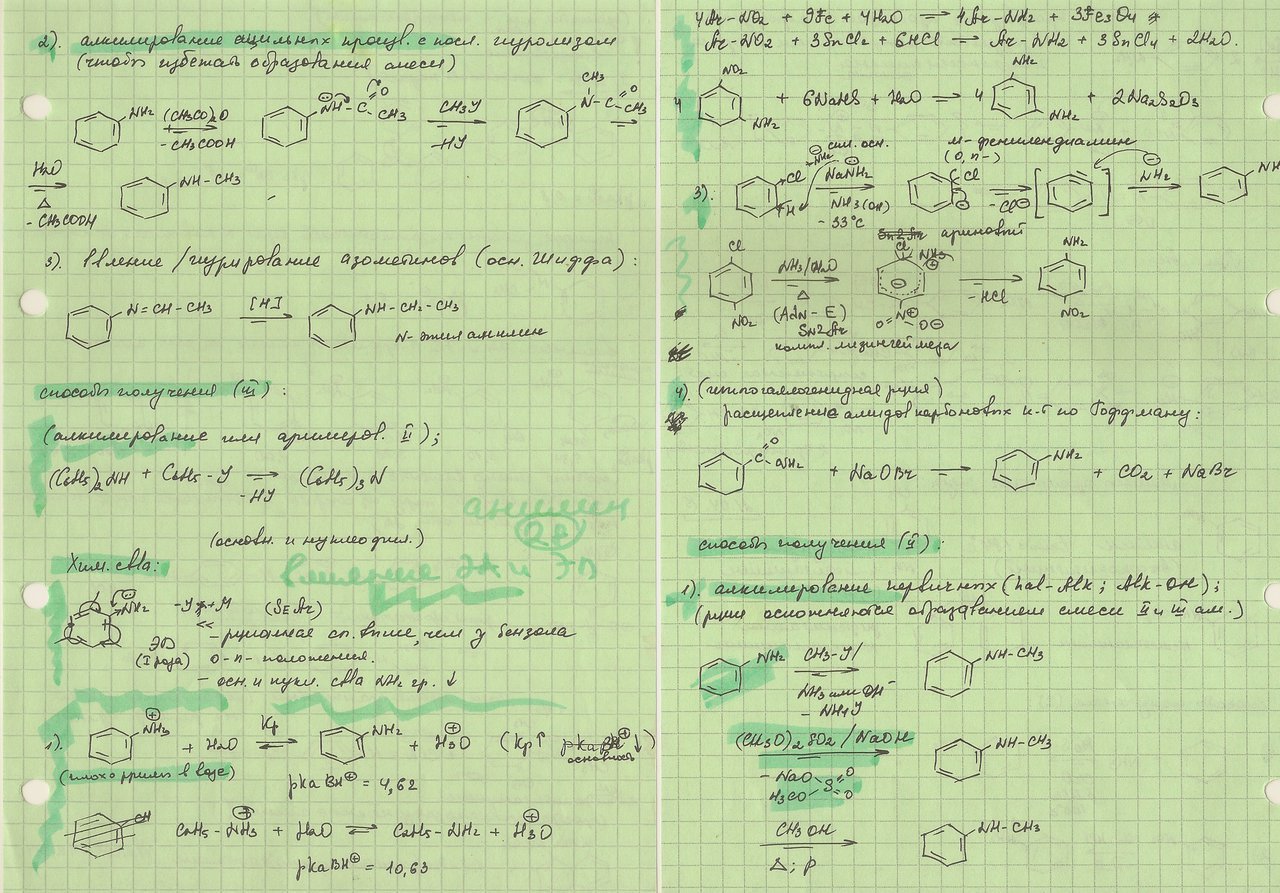 2). алкилирование ацильных произв. с посл. гидролизом
(чтобы избежать образования смеси)
NH2 (CH3CO)2O - CH3COOH NH-C O CH3 CH3J -HJ CH3 N-C O CH3
H2O △ - CH3COOH NH-CH3
3). /гидрирование азометинов (осн. Шиффа):
N=CH-CH3 [H] NH-CH2-CH3
N-этиланилин
способы получения (III):
(алкилирование или арилиров. II);
(C6H5)2NH + C6H5-J ⇌ -HJ (C6H5)3N
анилин
(основн. и нуклеофил.)
Хим. св-ва:
влияние ЭА и ЭД
NH2 -J << +M (SEAr)
- реакционная сп. выше, чем у бензола
ЭД (I рода) о-п- положения.
- осн. и нукл. св-ва NH2 гр. ↓
1). NH3 ⊕ + H2O Kр ⇌ NH2 + H3O ⊕ (Kр↑ основность ↓)
(плохо раств. в воде)
pKa BH⊕ = 4,62
C2H5-NH3 ⊕ + H2O ⇌ C2H5-NH2 + H3O ⊕
pKa BH⊕ = 10,63
4Ar-NO2 + 9Fe + 4H2O → 4Ar-NH2 + 3Fe3O4
Ar-NO2 + 3SnCl2 + 6HCl → Ar-NH2 + 3SnCl4 + 2H2O.
4 NO2 NH2 + 6NaHS + H2O → 4 NH2 NH2 + 2Na2S2O3
м-фенилендиамин
(о, п-)
3). Cl H сил. осн. ⊖NH2 NaNH2 NH3(ж) -33°C Cl ⊖ -Cl⊖ [ ] ⊖NH2 NH
ариновый
Cl NO2 NH3/H2O △ (AdN-E) SN2Ar Cl NH3 ⊕ ⊖ N⊕ O O⊖ -HCl NH2 NO2
компл. мизингеймера
4). (гипогалогенидная р-ция)
расщепление амидов карбоновых к-т по Гоффману:
C O NH2 + NaOBr → NH2 + CO2 + NaBr
способы получения (II):
1). алкилирование первичных (hal-Alk; Alk-OH);
(р-ции осложняются образованием смеси II и III ам.)
NH2 CH3-J/ NH3 или OH⁻ - NH4J NH-CH3
(CH3O)2SO2/NaOH - NaO H3CO S O O NH-CH3
CH3OH △; p NH-CH3